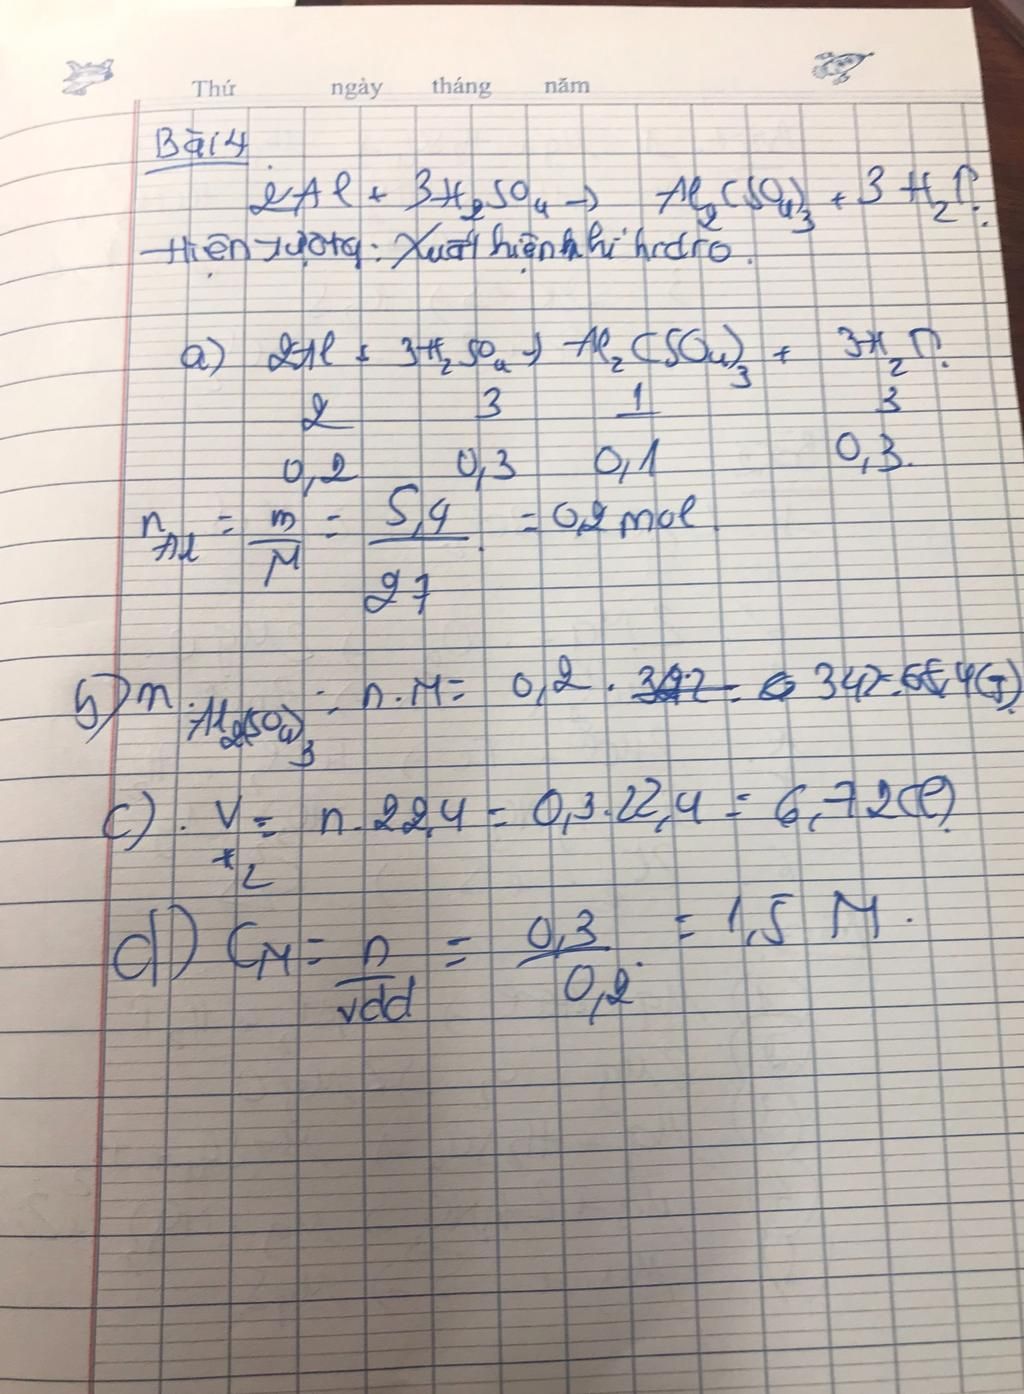 Thứ ngày tháng năm
Bài 4
2Al + 3H2SO4 → Al2(SO4)3 + 3H2↑.
Hiện tượng: Xuất hiện khí hrdro.
a) 2Al + 3H2SO4 → Al2(SO4)3 + 3H2↑.
2 3 1 3
0,2 0,3 0,1 0,3.
nAl = m/M = 5,4/27 = 0,2 mol
b) m Al2(SO4)3 = n.M = 0,2 . 342 = 68,4(g)
c). V H2 = n.22,4 = 0,3.22,4 = 6,72(l)
d) CM = n/Vdd = 0,3/0,2 = 1,5 M.